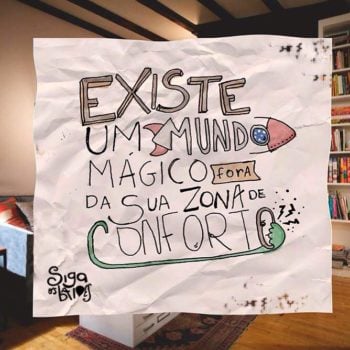 EXISTE
UM MUNDO
MÁGICO fora
DA SUA ZONA DE
CONFORTO
Siga
os